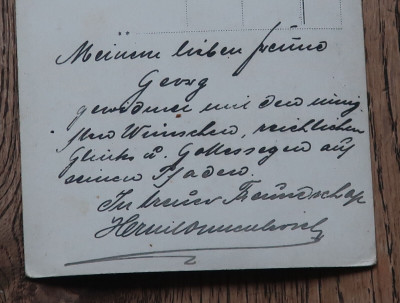 Meinem lieben Freund
Georg
gewidmet mit den innig
sten Wünschen, reichlichen
Glücks u. Gottessegen auf
seinen Pfaden.
In treuer Freundschaft